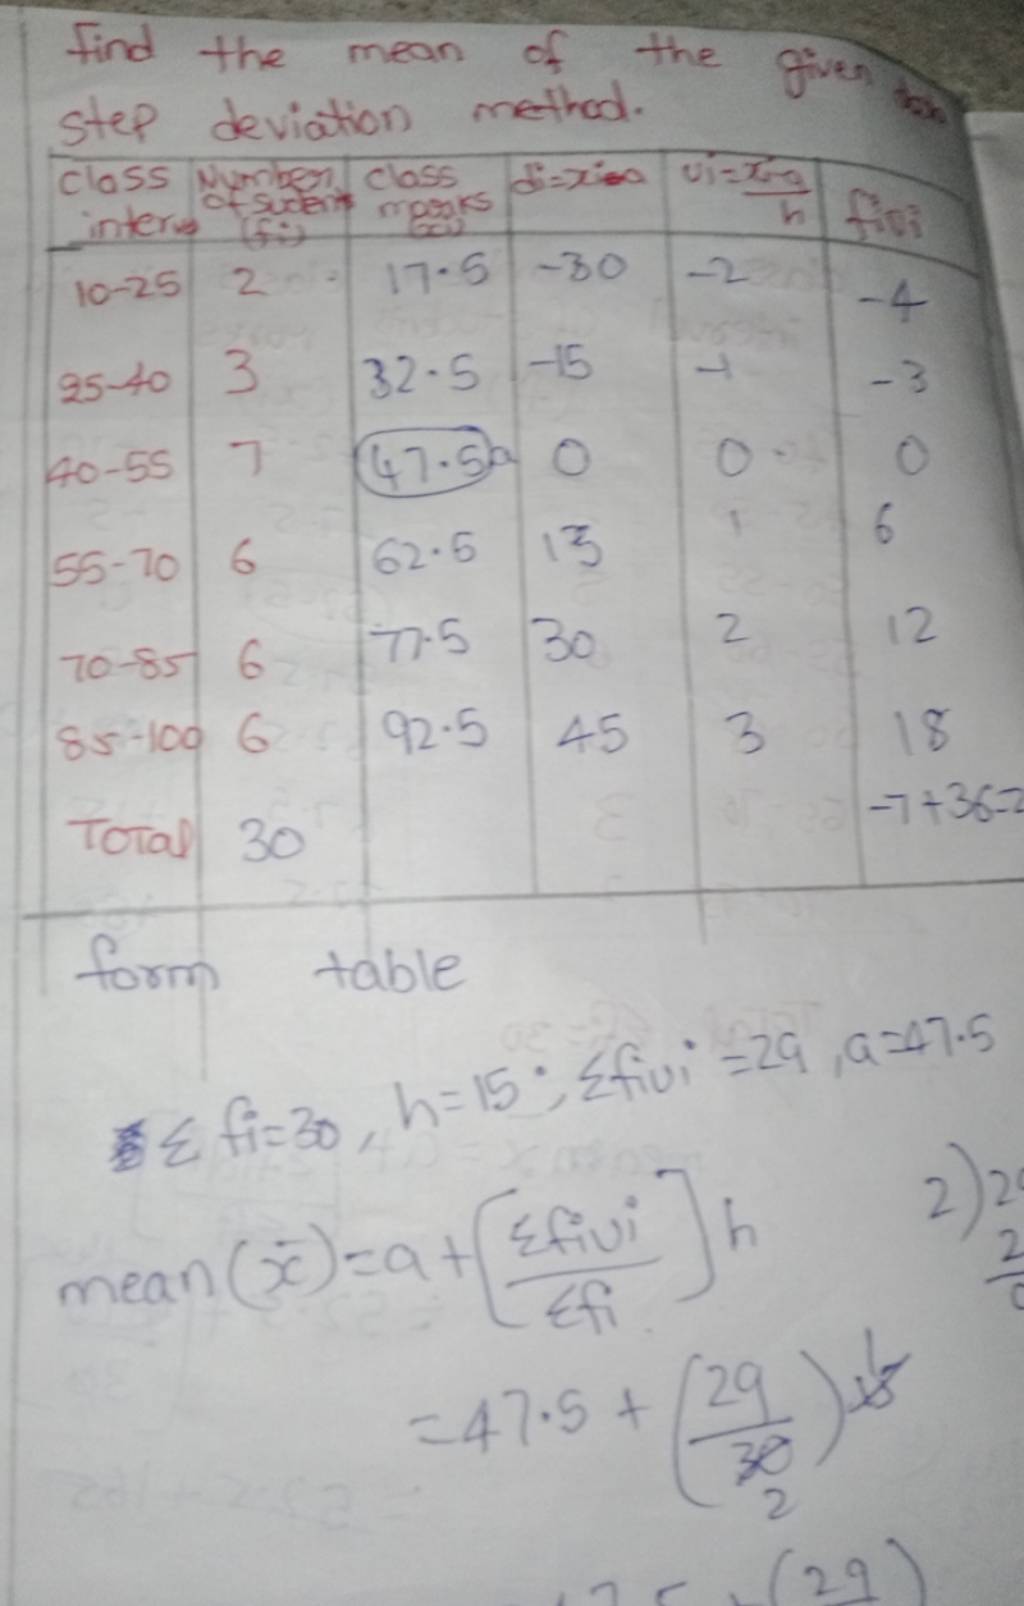 find the mean of the given
step deviation method.
class interv Number of sudents (fi) class marks (xi) di=xi-a ui=xi-a/h fiui
10-25 2 17.5 -30 -2 -4
25-40 3 32.5 -15 -1 -3
40-55 7 47.5 a 0 0 0
55-70 6 62.5 15 1 6
70-85 6 77.5 30 2 12
85-100 6 92.5 45 3 18
Total 30 -7+36=2
form table
Σfi=30, h=15; Σfiui=29, a=47.5
mean(x̄)=a+[Σfiui/Σfi]h
2)29
2
=47.5+(29/30)15
1
2
(29)